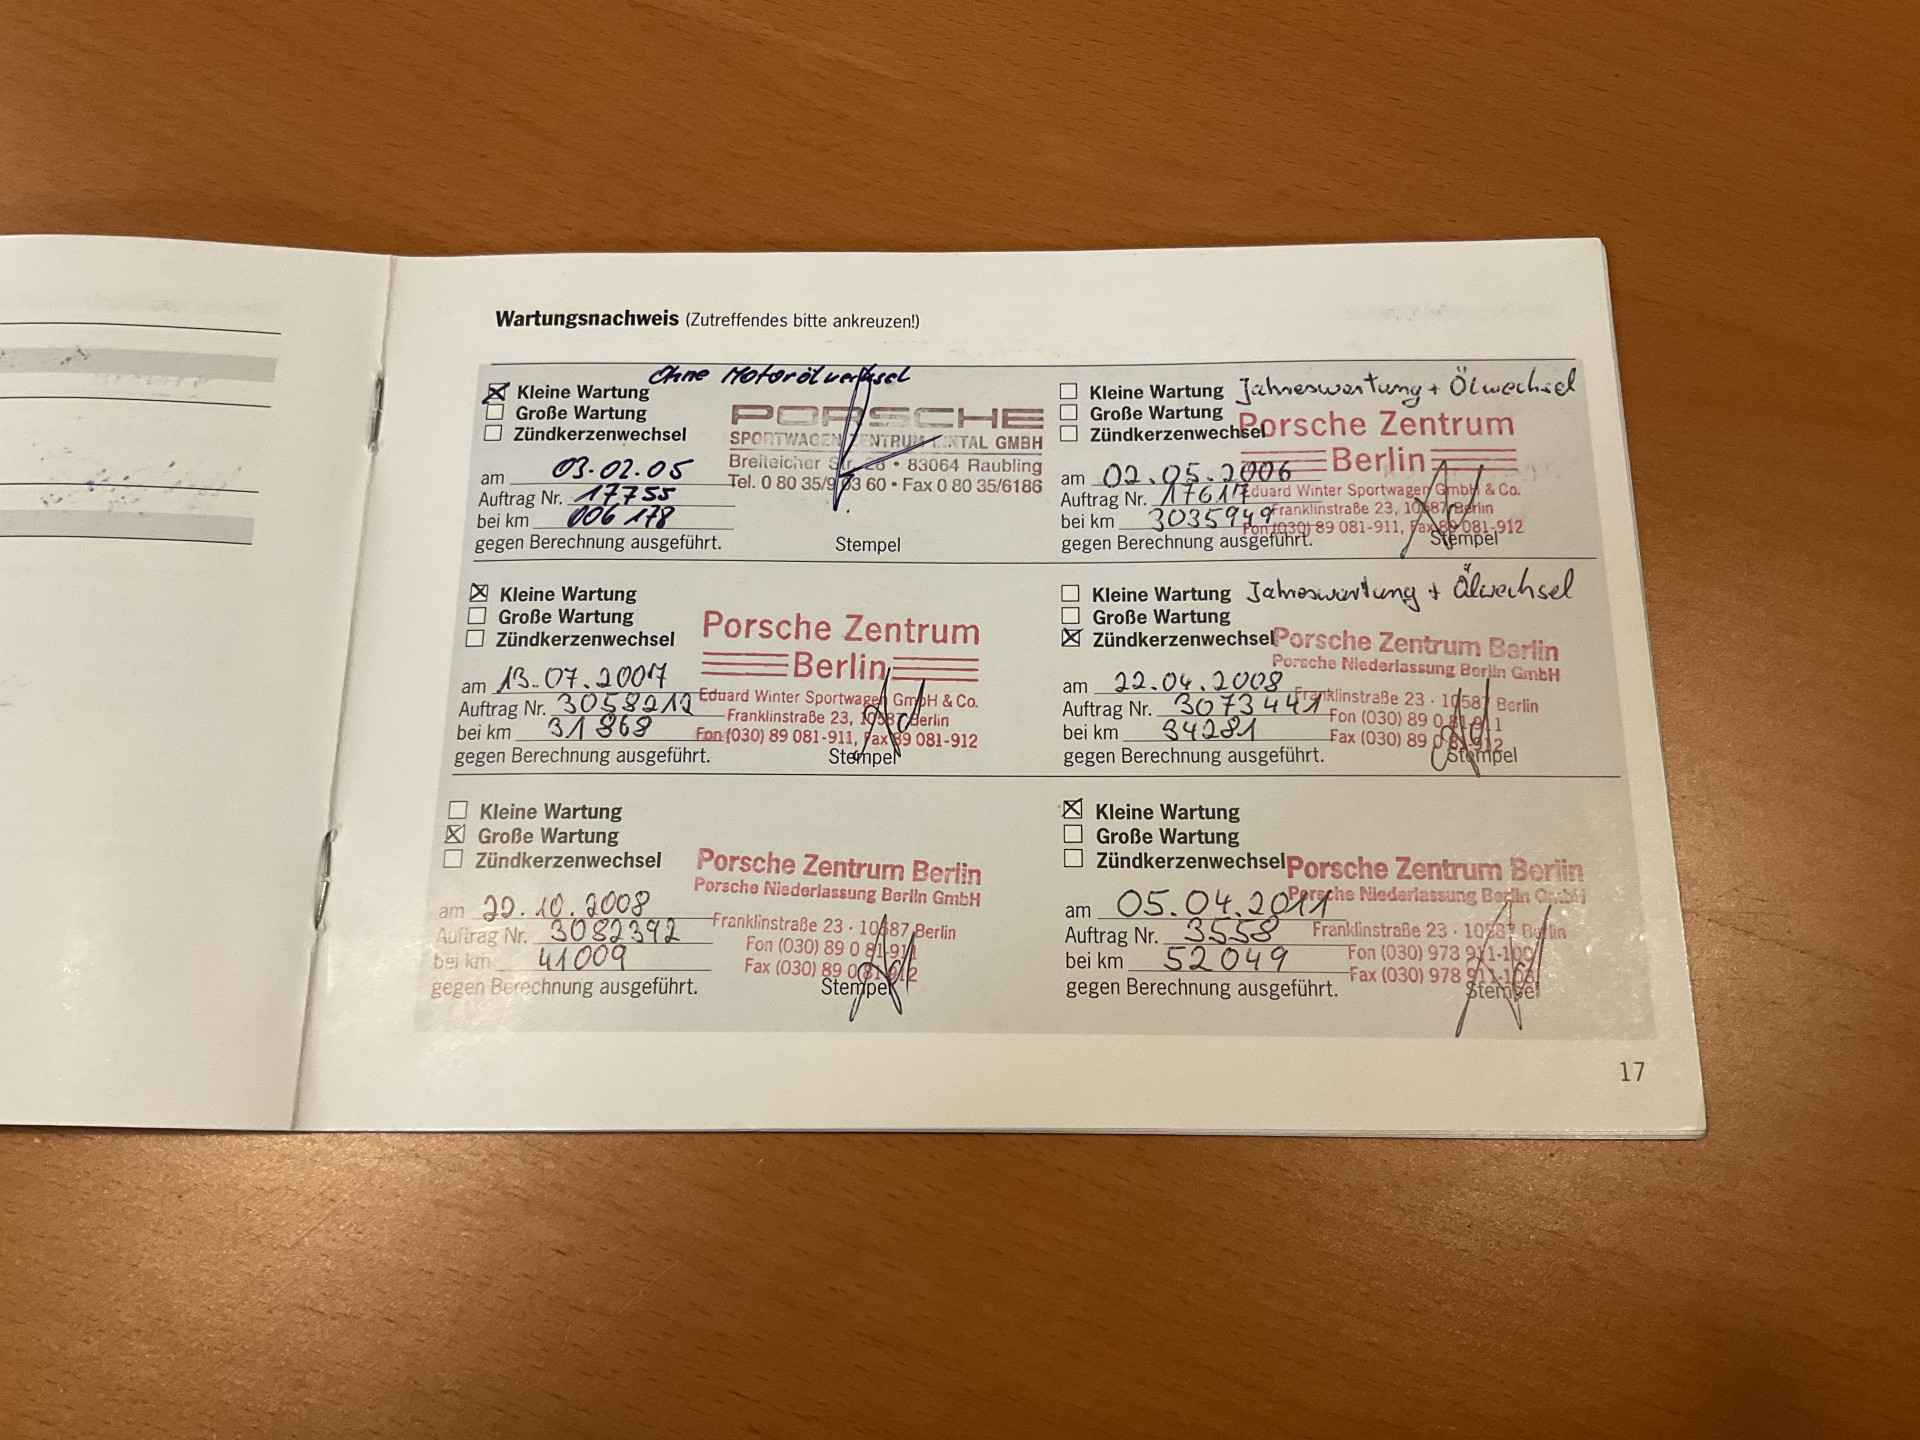 Wartungsnachweis (Zutreffendes bitte ankreuzen!)
Ohne Motorölwechsel
Kleine Wartung
Große Wartung
Zündkerzenwechsel
PORSCHE
SPORTWAGEN ZENTRUM INNTAL GMBH
Breiteicher Str. 26 • 83064 Raubling
Tel. 0 80 35/9 03 60 • Fax 0 80 35/6186
am 03.02.05
Auftrag Nr. 17755
bei km 006 178
gegen Berechnung ausgeführt.
Stempel
Kleine Wartung Jahreswartung + Ölwechsel
Große Wartung
Zündkerzenwechsel
Porsche Zentrum
Berlin
Eduard Winter Sportwagen GmbH & Co.
Franklinstraße 23, 10587 Berlin
Fon (030) 89 081-911, Fax 89 081-912
am 02.05.2006
Auftrag Nr. 17617
bei km 3035949
gegen Berechnung ausgeführt.
Stempel
Kleine Wartung
Große Wartung
Zündkerzenwechsel
Porsche Zentrum
Berlin
Eduard Winter Sportwagen GmbH & Co.
Franklinstraße 23, 10587 Berlin
Fon (030) 89 081-911, Fax 89 081-912
am 13.07.2007
Auftrag Nr. 3058212
bei km 31868
gegen Berechnung ausgeführt.
Stempel
Kleine Wartung Jahreswartung + Ölwechsel
Große Wartung
Zündkerzenwechsel
Porsche Zentrum Berlin
Porsche Niederlassung Berlin GmbH
Franklinstraße 23 · 10587 Berlin
Fon (030) 89 0 81-911
Fax (030) 89 0 81-912
am 22.04.2008
Auftrag Nr. 3073441
bei km 34281
gegen Berechnung ausgeführt.
Stempel
Kleine Wartung
Große Wartung
Zündkerzenwechsel
Porsche Zentrum Berlin
Porsche Niederlassung Berlin GmbH
Franklinstraße 23 · 10587 Berlin
Fon (030) 89 0 81-911
Fax (030) 89 0 81-912
am 22.10.2008
Auftrag Nr. 3082392
bei km 41009
gegen Berechnung ausgeführt.
Stempel
Kleine Wartung
Große Wartung
Zündkerzenwechsel
Porsche Zentrum Berlin
Porsche Niederlassung Berlin GmbH
Franklinstraße 23 · 10587 Berlin
Fon (030) 978
Fax (030) 978
am 05.04.2011
Auftrag Nr. 3558
bei km 52049
gegen Berechnung ausgeführt.
Stempel
17